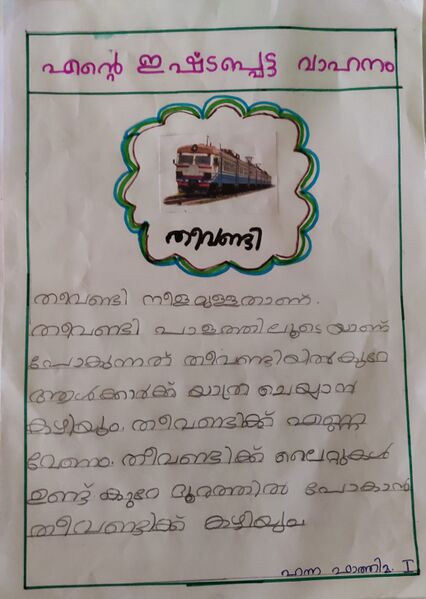 എന്റെ ഇഷ്ടപ്പെട്ട വാഹനം
തീവണ്ടി
തീവണ്ടി നീളമുള്ളതാണ്.
തീവണ്ടി പാളത്തിലൂടെയാണ്
പോകുന്നത് തീവണ്ടിയിൽ കുറേ
ആൾക്കാർക്ക് യാത്ര ചെയ്യാൻ
കഴിയും. തീവണ്ടിക്ക് എണ്ണ
വേണം. തീവണ്ടിക്ക് ലൈറ്റുകൾ
ഉണ്ട് കുറേ ദൂരത്തിൽ പോകാൻ
തീവണ്ടിക്ക് കഴിയും
ഹന്ന ഫാത്തിമ. I